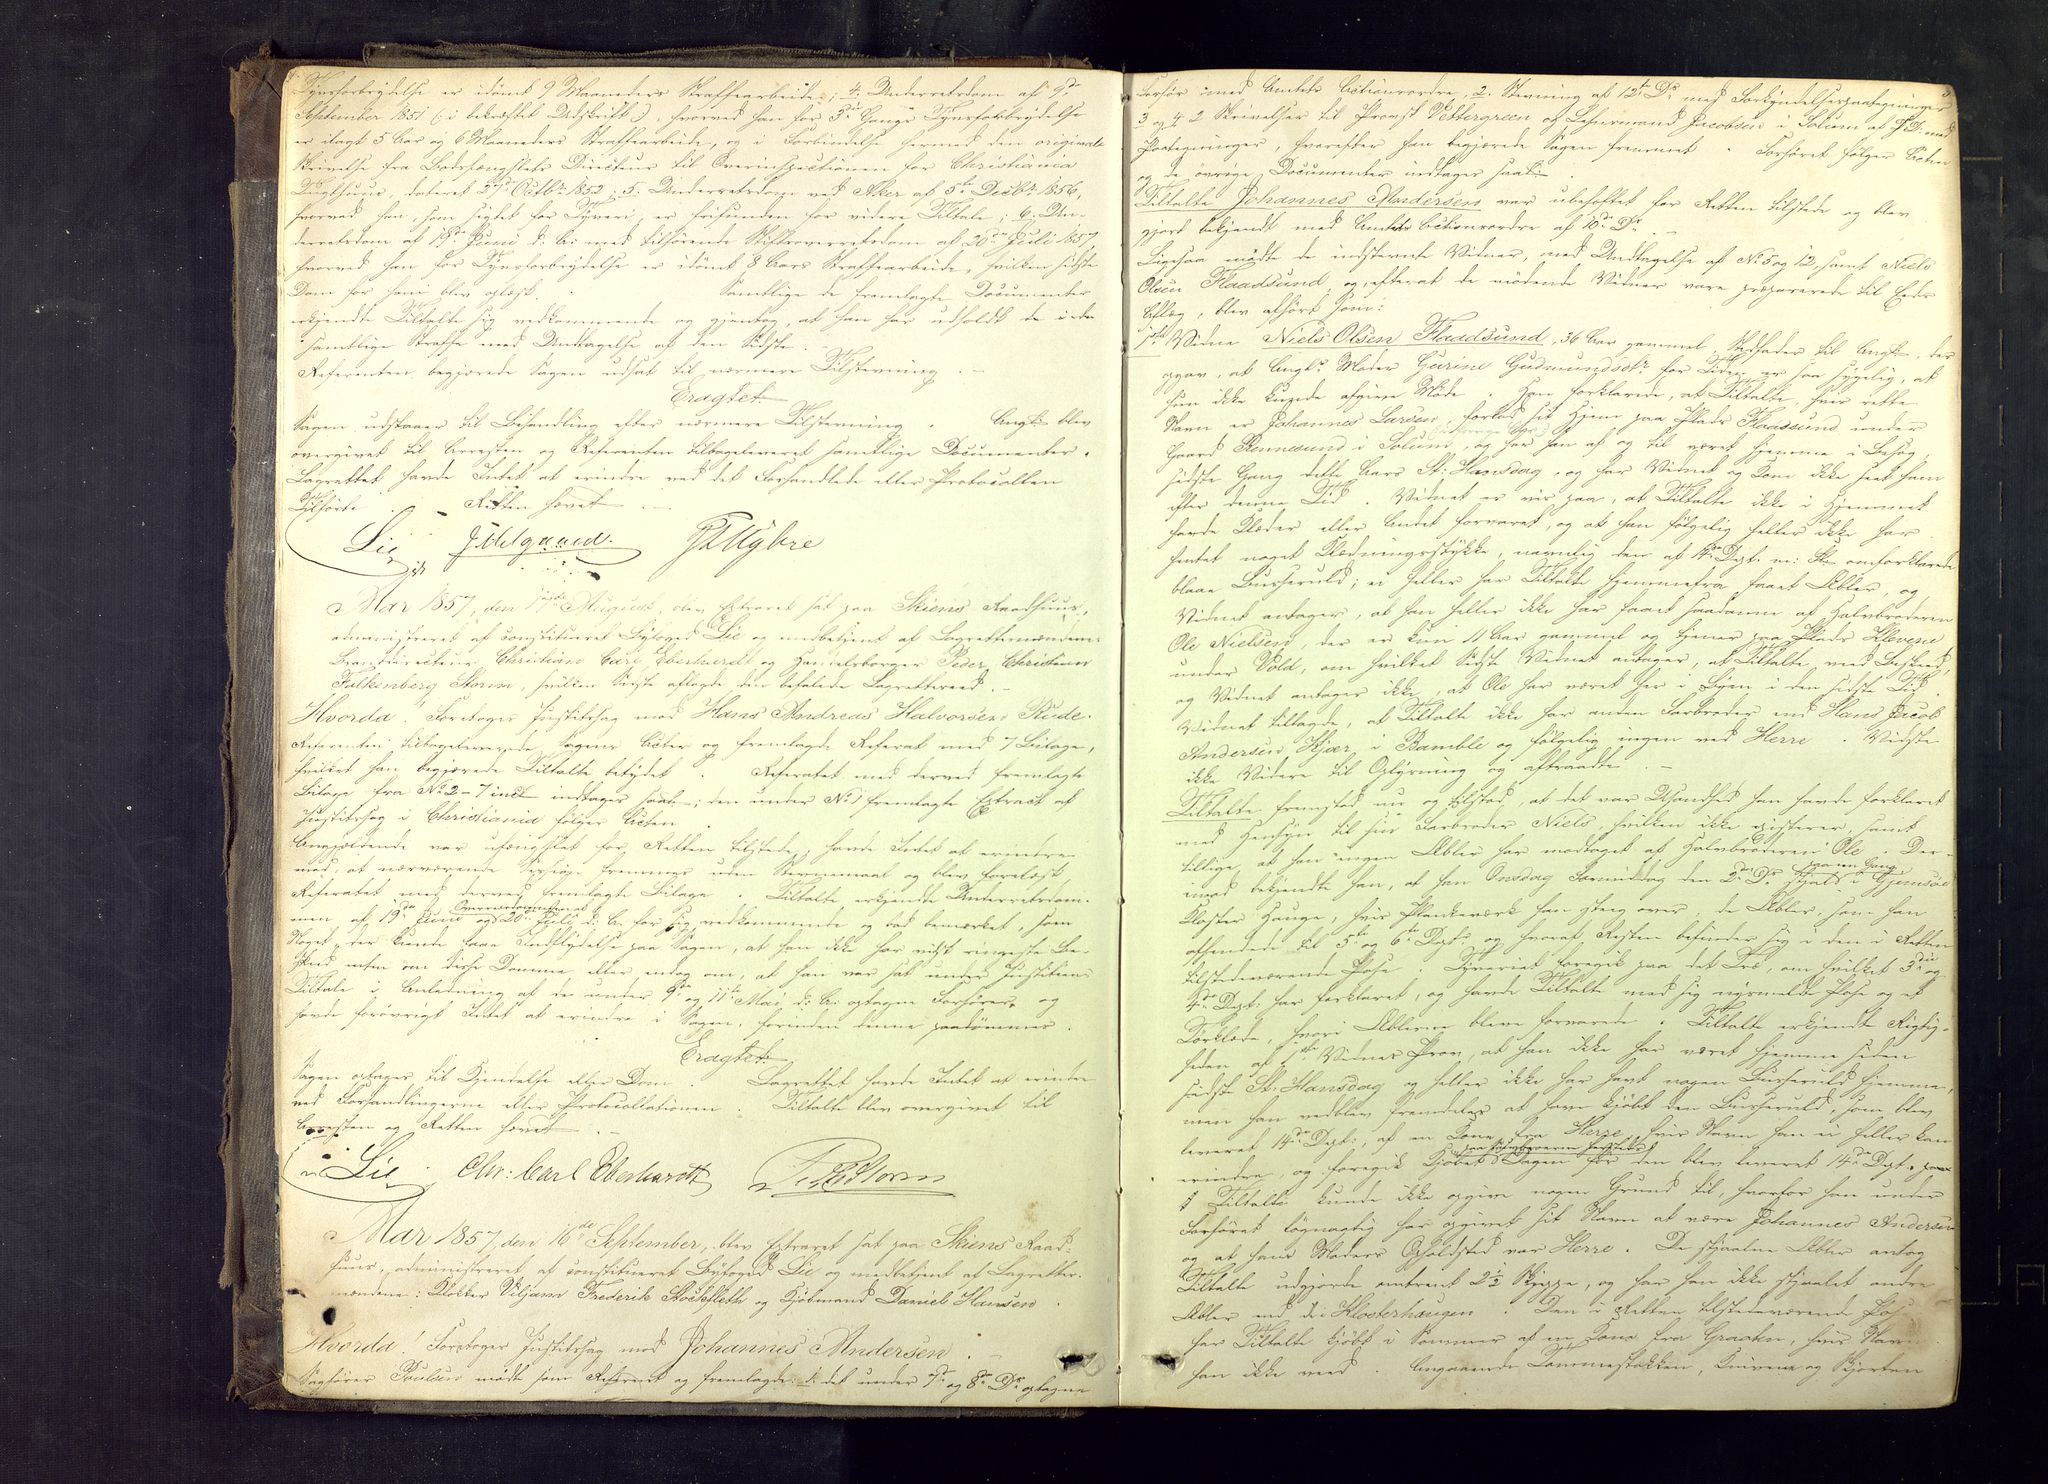 Tyvsforbrydelse er idømt 9 Maaneders Strafarbeide; 4. Underretsdom af 9de
September 1851 (i bekræftet Udskrift), hvorved han for 3die Gang Tyvsforbrydelse
er ilagt 5 Aar og 6 Maaneders Strafarbeide, og i Forbindelse hermed den originale
Skrivelse fra Bodsfængslets Directeur til Overinspectionen for Christiania
Tugthuus, dateret 27 Octbr. 1852; 5. Underretsdom ved Aker af 5te Decbr. 1856,
hvorved han, som sigtet for Tyveri, er frifunden for videre Tiltale; 6. Un-
derretsdom af 19de Juni d. A. med tilhørende Stiftsoverretsdom af 20de Juli 1857,
hvorved han for Tyvsforbrydelse er idømt 8 Aars Strafarbeide, hvilken sidste
Dom for ham blev oplæst. Samtlige de fremlagte Documenter
erkjendte Tiltalte sig vedkommende og gjentog, at han har udholdt de idømte
samtlige Straffe med Undtagelse af den Sidste.
Referenten begjærede Sagen udsat til nærmere Tilstevning.
Eragtet:
Sagen udstaaer til Behandling efter nærmere Tilstevning. Angj. blev
overgivet til Arresten og Referenten tilbageleveret samtlige Documenter.
Lagrettet havde Intet at erindre ved det Forhandlede eller Protocollen
Tilførte. Retten hævet.
Lie
Aar 1857, den 17de August, blev Extraret sat paa Skiens Raadhuus,
administreret af constitueret Byfoged Lie og medbetjent af Lagrettesmændene:
Branddirecteur Christian Carl Eberhardt og Handelsborger Peder Christian
Falkenberg Storm, hvilken Sidste aflagde den befalede Lagrettesed.
Hvorda! Foretoges Justitssag mod Hans Andreas Halvorsen Rude.
Referenten tilbageleverede Sagens Acter og fremlagde Referat med 7 Bilage,
hvilket han begjærede Tiltalte betydet. Referatet med derved fremlagte
Bilage fra No 2–7 incl. indtages saal.; den under No 1 fremlagte Extract af
Justitssag i Christiania følger Acten.
Angjældende var ufængslet for Retten tilstede, havde Intet at erindre
mod, at nærværende Session fremmes uden Stevnemaal og blev forelæst
Referatet med derved fremlagte Bilage. Tiltalte erkjendte Underretsdom-
men af 19de Juni og Overretsdommen af 20de Juli d. A. for sig vedkommende og bad bemærket, som
Noget, der kunde faae Indflydelse paa Sagen, at han ikke har vidst ringeste Be-
sked om disse Domme, eller endog om, at han var sat under Justitiens
Tiltale i Anledning af de under 9de og 11te Mai d. A. optagne Forhører og
havde forøvrigt Intet at erindre i Sagen, forinden denne paadømmes.
Eragtet:
Sagen optages til Kjendelse eller Dom. Lagrettet havde Intet at erindre
ved Forhandlingerne eller Protocollationen. Tiltalte blev overgivet til
Arresten og Retten hævet.
Lie Chr: Carl Eberhardt P. C. F. Storm
Aar 1857, den 16de September, blev Extraret sat paa Skiens Raad-
huus, administreret af constitueret Byfoged Lie og medbetjent af Lagrettes-
mændene: Klokker Viljam Frederik Stockfleth og Kjøbmand Daniel Hansen.
Hvorda! Foretoges Justitssag mod Johannes Andersen.
Sagfører Poulsen mødte som Referent og fremlagde: 1. det under 7de og 8de Ds. optagne
Forhør med Amtets Actionsordre, 2. Stevning af 12te Ds. med Forkyndelsespaategninger
3 og 4. 2 Skrivelser til Provst Vettergreen og Lehnsmand Jacobsen i Solum af D. med
Paategninger, hvorefter han begjærede Sagen fremmet. Forhøret følger Acten
og de øvrige Documenter indtages saal.
Tiltalte Johannes Andersen var ubehæftet for Retten tilstede og blev
gjort bekjendt med Amtets Actionsordre af 10de Ds.
Ligesaa mødte de indstevnte Vidner, med Undtagelse af No 5 og 12, samt Niels
Olsen Flaadsund og, efterat de mødende Vidner vare præparerede til Eeds
Aflæg, blev afhørt som:
1ste Vidne Niels Olsen Flaadsund, 36 Aar gammel, Stedfader til Angj., der
opgav, at Angjs. Moder Gurine Gudmundsdtr. for Tiden er saa sygelig, at
hun ikke kunde afgive Møde. Han forklarede, at Tiltalte, hvis rette
Navn er Johannes Larsen, forlod sit Hjem paa Plads Flaasund under
Gaard Rennesund i Solum, og har han af og til været hjemme i Besøg,
sidste Gang dette Aars St. Hansdag, og har Vidnet og Kone ikke seet ham
efter denne Tid. Vidnet er vis paa, at Tiltalte ikke i Hjemmet
havde Klæder eller Andet forvaret, og at han følgelig heller ikke har
hentet noget Klædningsstykke, navnlig den af 14de Dept. m. Fl. omforklarede
blaae Buserul; ei heller har Tiltalte hjemmefra faaet Æbler, og
Vidnet antager, at han heller ikke har faaet saadanne af Halvbroderen
Ole Nielsen, der er kun 11 Aar gammel og tjener paa Plads Klevene
under Vold, om hvilket Sidste Vidnet antager, at Tiltalte veed Besked,
og Vidnet antager ikke, at Ole har været her i Byen i den sidste Tid.
Vidnet tilføiede, at Tiltalte ikke har anden Farbroder end Hans Jacob
Andersen Kjær i Bamble og følgelig ingen ved Herre. Vidste
ikke Videre til Oplysning og aftraadte.
Tiltalte fremstod nu og tilstod, at det var Usandhed han havde forklaret
med Hensyn til sin Farbroder Niels, hvilken ikke existerer, samt
tillige at han ingen Æbler har modtaget af Halvbroderen Ole. Der-
imod bekjendte han, at han Onsdag Formiddag den 2den Ds. stjal paa een Gang i Gjemsøe
Kloster Hauge, hvis Plankeværk han steg over, de Æbler, som han
afhændede til 5te og 6te Dept. og hvoraf Resten befinder sig i den i Retten
tilstedeværende Pose. Tyveriet foregik paa det Træ, om hvilket 3die og
4de Dept. har forklaret, og havde Tiltalte med sig nysmeldte Pose og et
Tørklæde, hvori Æblerne bleve forvarede. Tiltalte erkjendte Rigtig-
heden af 1ste Vidnes Prov, at han ikke har været hjemme siden
sidste St. Hansdag og heller ikke har havt nogen Buserul hjemme,
men han vedblev fremdeles at have kjøbt den Buserul, som blev
leveret 14de Dept., af en Kone fra Herre, hvis Navn han ei heller kan
erindre, og foregik Kjøbet Dagen før den blev leveret 14de Dept.
Tiltalte kunde ikke opgive nogen Grund til, hvorfor han under
Forhøret løgnagtig har opgivet sit Navn at være Johannes Andersen
og at hans Moders Opholdssted var Herre. De stjaalne Æbler antog
Tiltalte udgjorde omtrent 2½ Skjæppe, og har han ikke stjaalet andre
Æbler end de i Klosterhaugen. Den i Retten tilstedeværende Pose
har Tiltalte kjøbt i Sommer af en Kone fra Graaten, hvis Navn
han ikke veed. Angaaende Tommestokken, Knivene og Skjorten